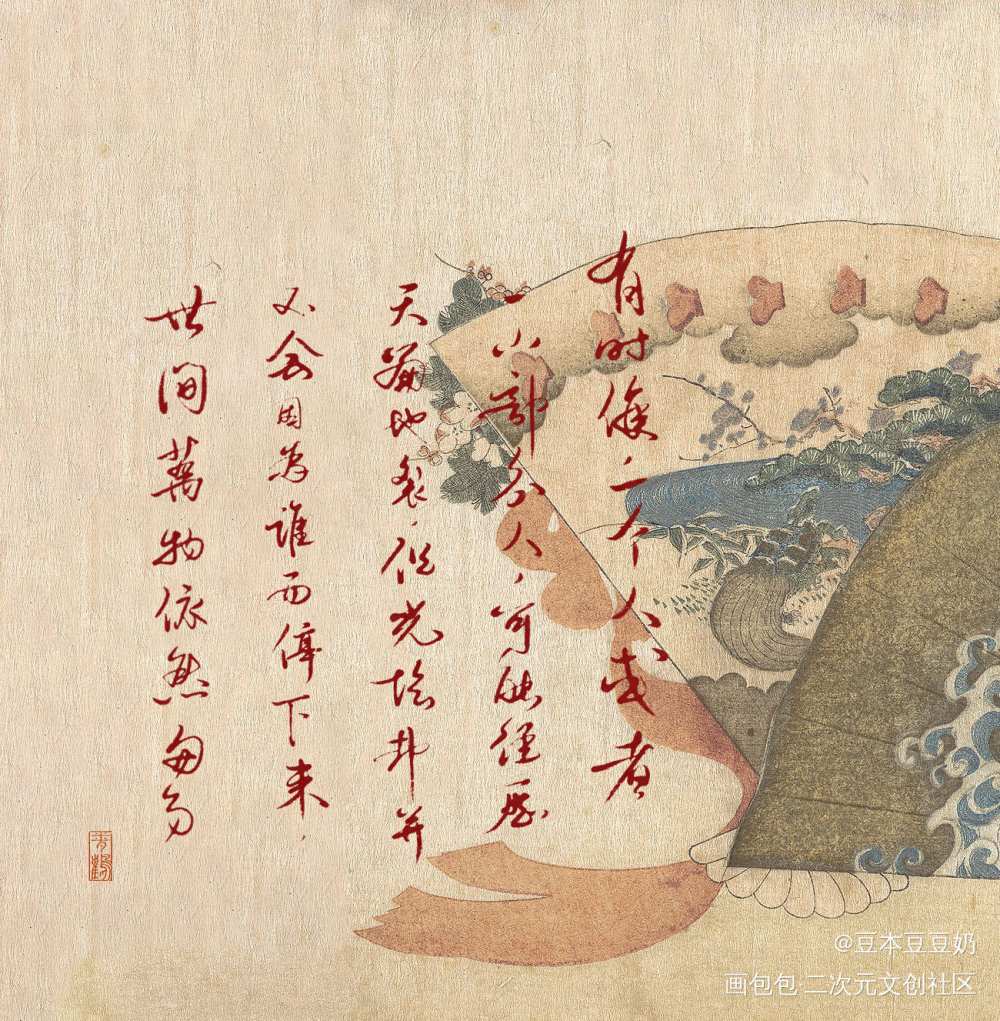 有时候一个人或者
一小部分人，可能经历
天崩地裂，但光陰却并
不会因为谁而停下来，
世间萬物依然匆匆
@豆本豆豆奶
画包包·二次元文创社区